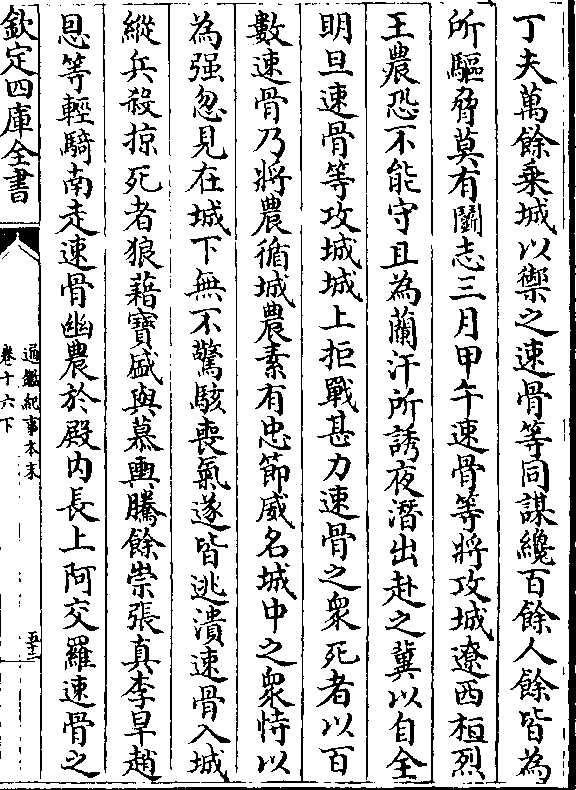 丁夫萬餘乗城以禦之速骨等同謀纔百餘人餘皆為
所驅脅莫有鬭志三月甲午速骨等将攻城遼西桓烈
王農恐不能守且為蘭汗所誘夜潛出赴之冀以自全
明旦速骨等攻城城上拒戰甚力速骨之衆死者以百
數速骨乃將農循城農素有忠節威名城中之衆恃以
為强忽見在城下無不驚駭喪氣遂皆逃潰速骨入城
縱兵殺掠死者狼藉寶盛與慕輿騰餘崇張真李旱趙
恩等輕騎南走速骨幽農於殿内長上阿交羅速骨之
欽定四庫全書
通鑑紀事本末
卷十六下
五十二